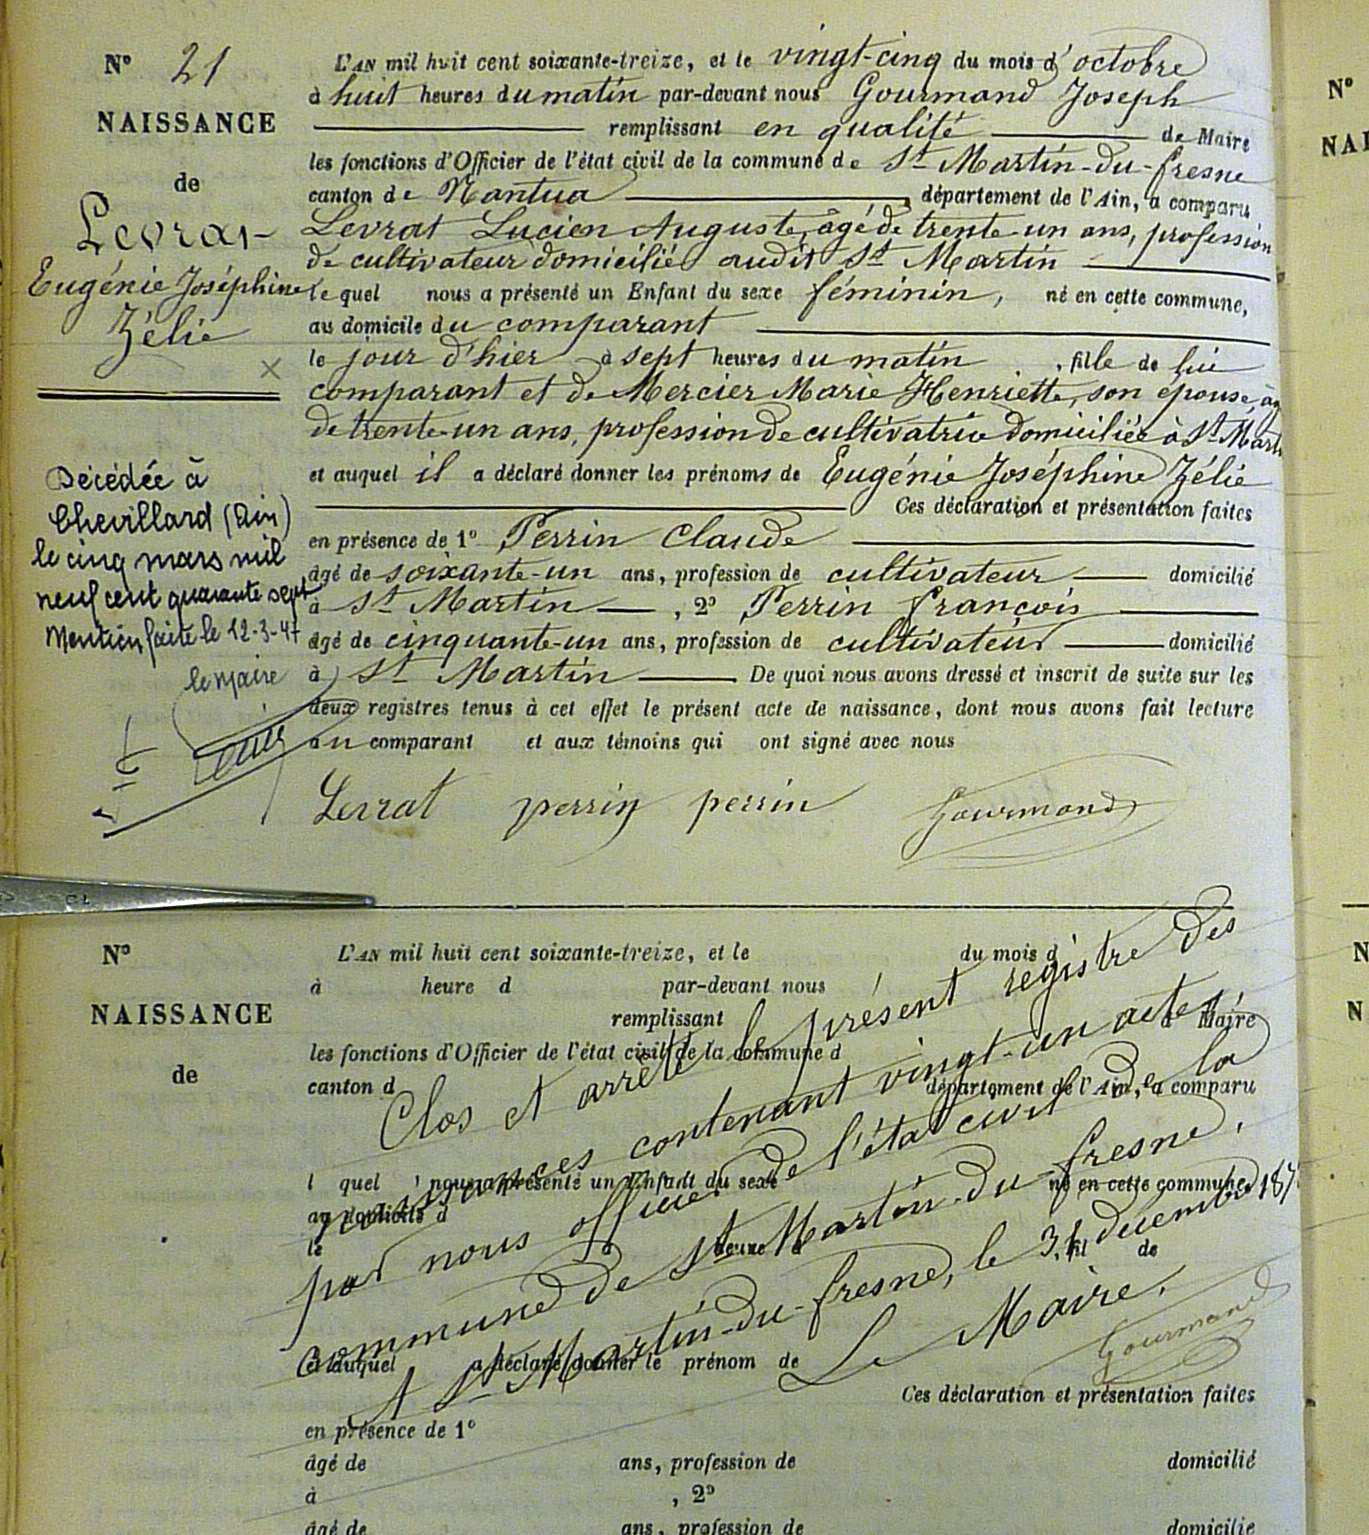 N° 21
NAISSANCE
de
Levrat
Eugénie Joséphine
Zélie
L'AN mil huit cent soixante-treize, et le vingt-cinq du mois d'octobre
à huit heures du matin par-devant nous Gourmand Joseph
remplissant en qualité de Maire
les fonctions d'Officier de l'état civil de la commune de St Martin-du-fresne
canton de Nantua département de l'Ain, a comparu
Levrat Lucien Auguste, âgé de trente un ans, profession
de cultivateur domicilié audit St Martin
lequel nous a présenté un Enfant du sexe féminin, né en cette commune,
au domicile du comparant
le jour d'hier à sept heures du matin, fille de lui
comparant et de Mercier Marie Henriette, son épouse, âg
de trente-un ans, profession de cultivatrice domiciliée à St Marti
et auquel il a déclaré donner les prénoms de Eugénie Joséphine Zélie
Ces déclaration et présentation faites
en présence de 1° Perrin Claude
âgé de soixante-un ans, profession de cultivateur domicilié
à St Martin, 2° Perrin françois
âgé de cinquante-un ans, profession de cultivateur domicilié
à St Martin De quoi nous avons dressé et inscrit de suite sur les
deux registres tenus à cet effet le présent acte de naissance, dont nous avons fait lecture
au comparant et aux témoins qui ont signé avec nous
Levrat perrin perrin Gourmand
Décédée à
Chevillard (Ain)
le cinq mars mil
neuf cent quarante sept
Mention faite le 12-3-47
le Maire
N°
NAISSANCE
de
L'AN mil huit cent soixante-treize, et le du mois d
à heure d par-devant nous
remplissant d Maire
les fonctions d'Officier de l'état civil de la commune d
canton d département de l'Ain, a comparu
l quel nous a présenté un Enfant du sexe né en cette commune,
au domicile d
le à heure d , fil de
et auquel a déclaré donner le prénom de
Ces déclaration et présentation faites
en présence de 1°
âgé de ans, profession de domicilié
à , 2°
âgé de ans, profession de domicilié
Clos et arrêté le présent registre des
naissances contenant vingt-un actes,
par nous officier de l'état civil de la
commune de St Martin-du-fresne.
A St Martin-du-fresne, le 31 décembre 187
Le Maire,
Gourmand
N°
NAI
N
N